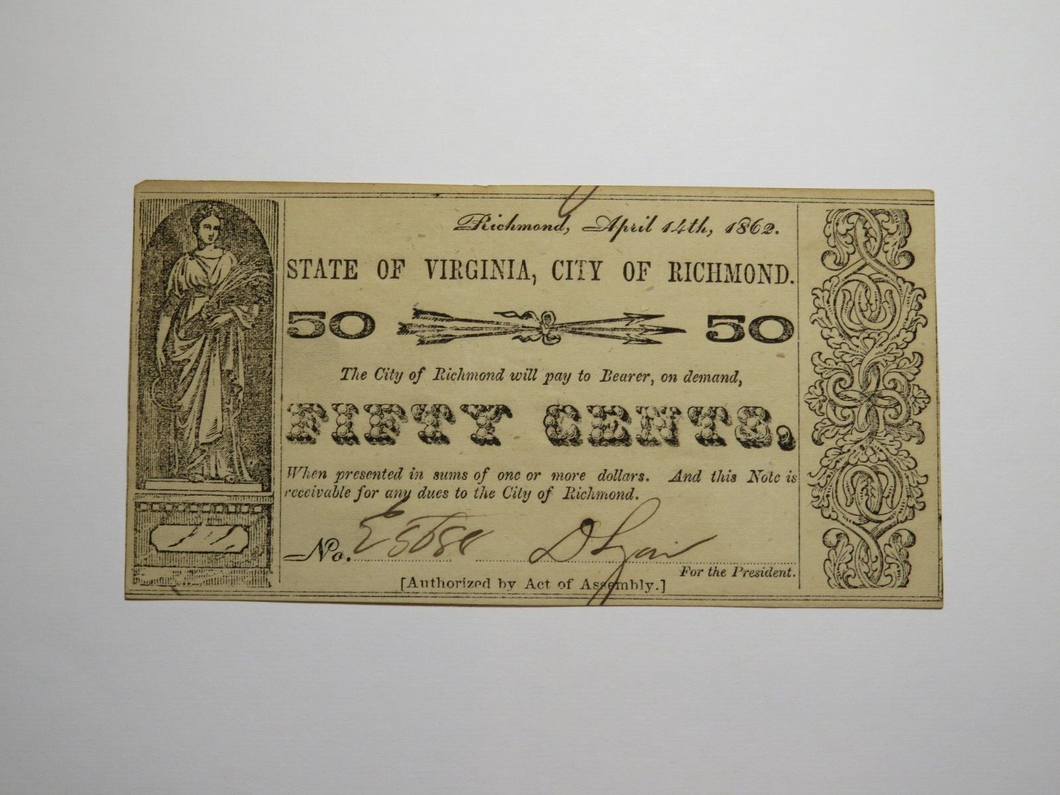 Richmond, April 14th, 1862.
STATE OF VIRGINIA, CITY OF RICHMOND.
50 50
The City of Richmond will pay to Bearer, on demand,
FIFTY CENTS,
When presented in sums of one or more dollars. And this Note is
receivable for any dues to the City of Richmond.
No.
For the President.
[Authorized by Act of Assembly.]